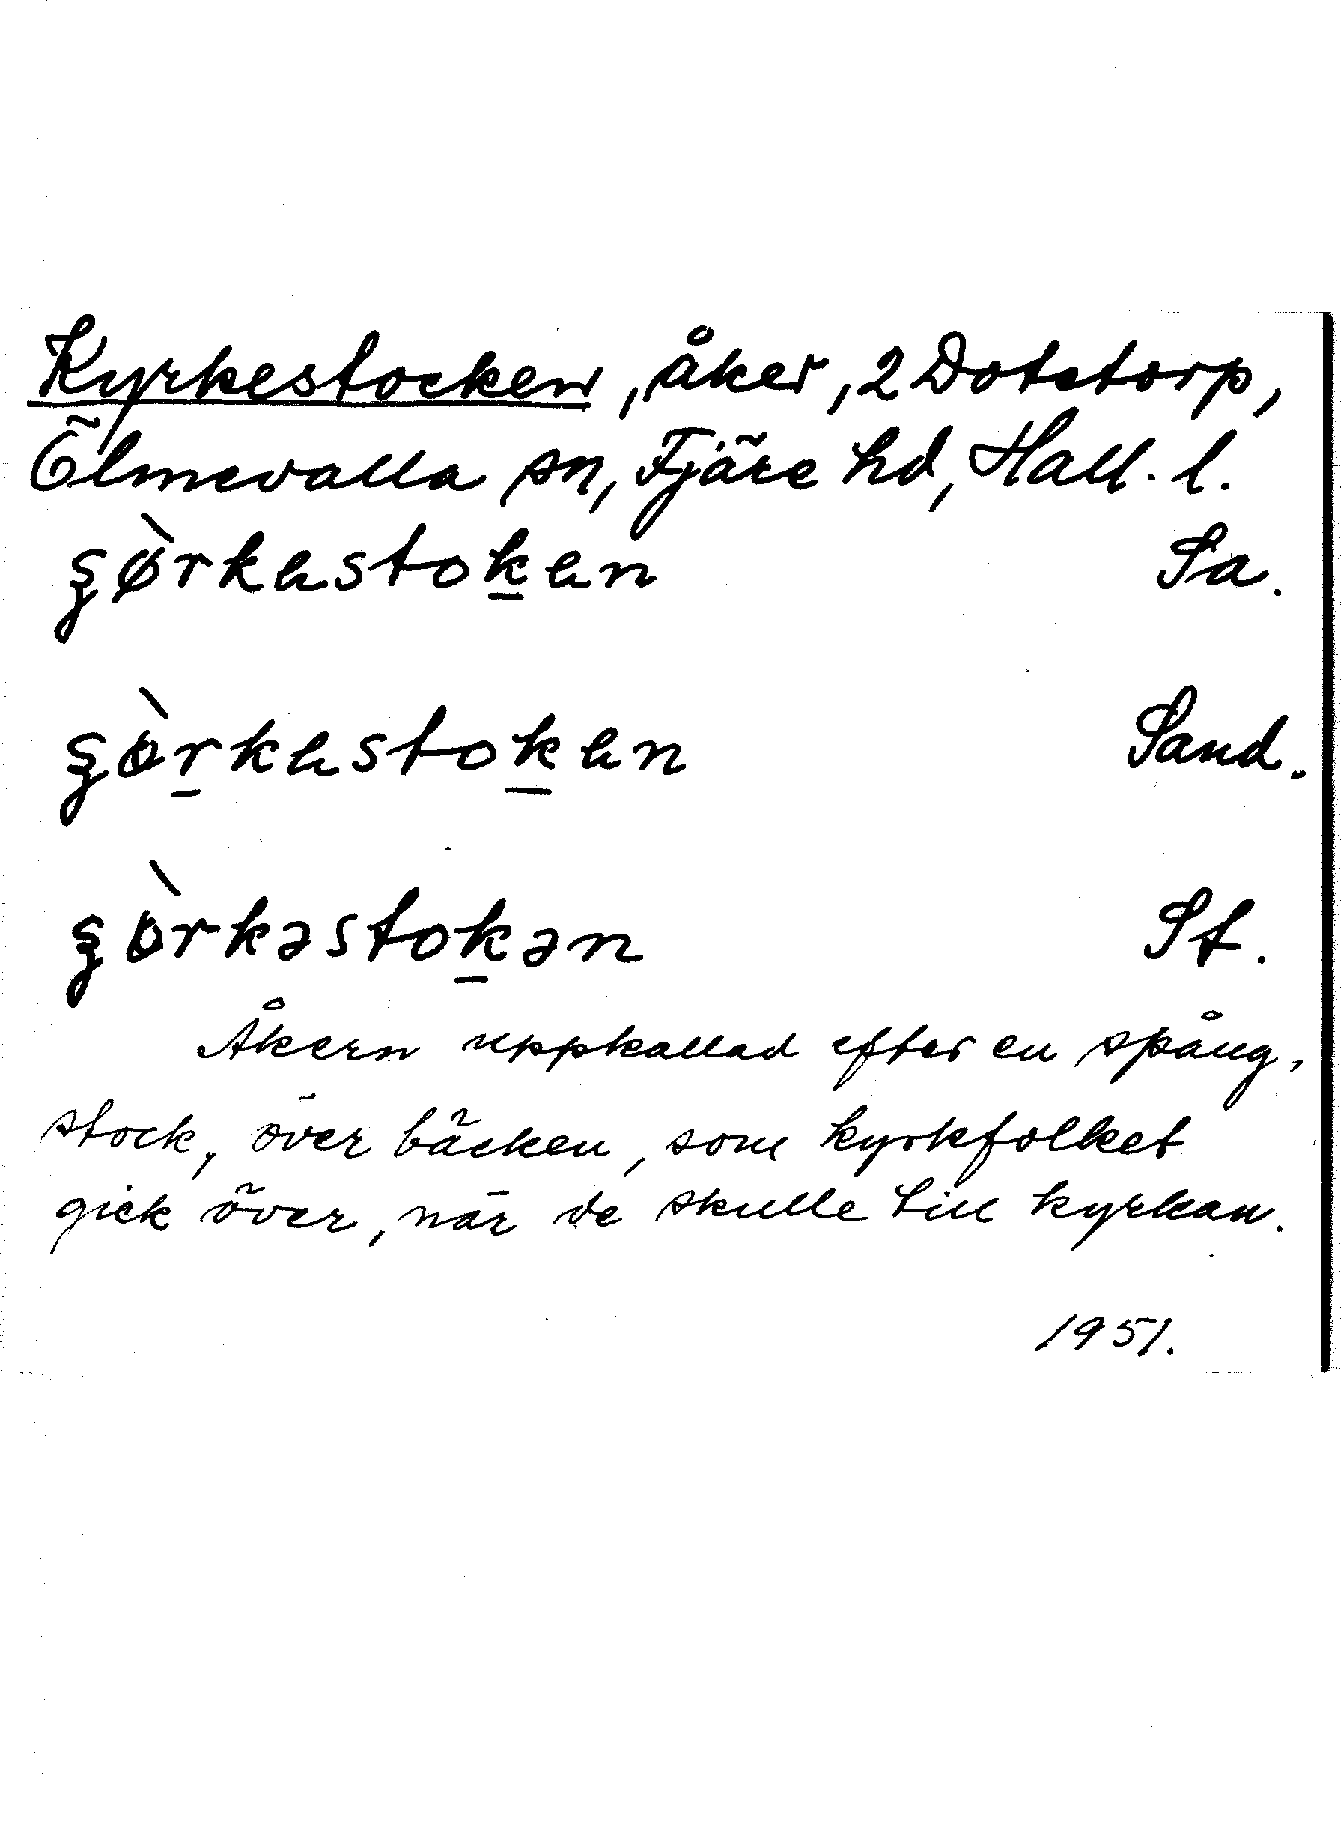 Kyrkestocken, åker, 2 Dotetorp,
Ölmevalla sn, Fjäre hd, Hall. l.
Sa.
Sand.
St.
Åkern uppkallad efter en spång-
stock, över bäcken, som kyrkfolket
gick över, när de skulle till kyrkan.
1951.